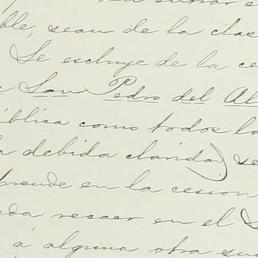 ble, sean de la clas
Se escluye de la ce
San Pedro del Al
ública como todos lo
a debida claridad) se
prende en la cesion
da recaer en el S
á alguna otra su